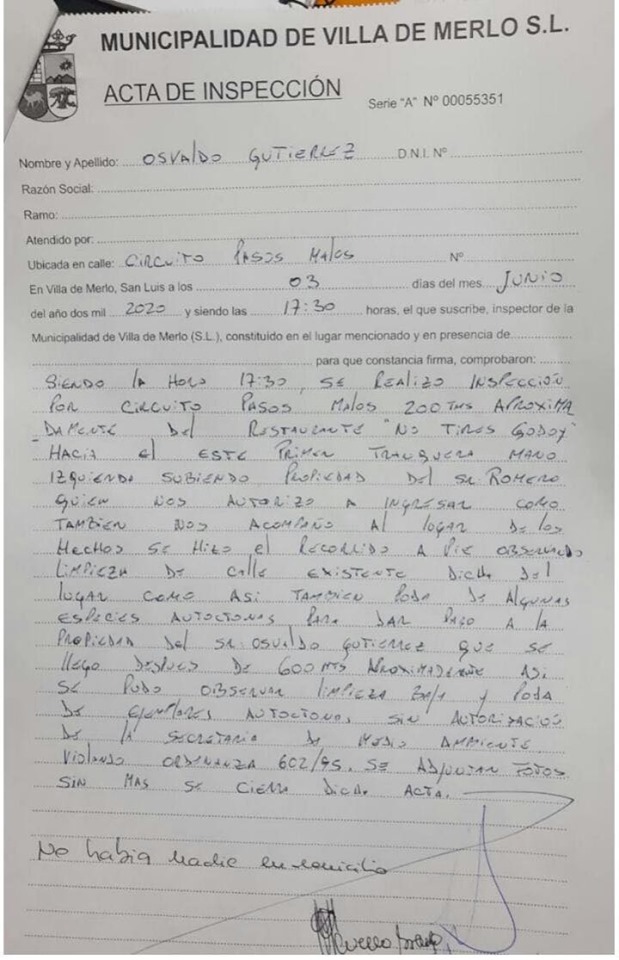 MUNICIPALIDAD DE VILLA DE MERLO S.L.
ACTA DE INSPECCIÓN
Serie "A" Nº 00055351
Nombre y Apellido: OSVALDO GUTIERREZ D.N.I. Nº
Razón Social:
Ramo:
Atendido por:
Ubicada en calle: CIRCUITO PASOS MALOS Nº
En Villa de Merlo, San Luis a los 03 días del mes JUNIO
del año dos mil 2020 y siendo las 17:30 horas, el que suscribe, inspector de la
Municipalidad de Villa de Merlo (S.L.), constituído en el lugar mencionado y en presencia de
para que constancia firma, comprobaron:
SIENDO LA HORA 17:30, SE REALIZO INSPECCIÓN
POR CIRCUITO PASOS MALOS 200 TMS APROXIMA
DAMENTE DEL RESTAURANTE "NO TIRES GODOY"
HACIA EL ESTE PRIMER TRANQUERA MANO
IZQUIENDA SUBIENDO PROPIEDAD DEL SR ROMERO
QUIEN NOS AUTORIZO A INGRESAR COMO
TAMBIEN NOS ACOMPAÑO AL LUGAR DE LOS
HECHOS SE HIZO EL RECORRIDO A PIE OBSERVADO
LIMPIEZA DE CALLE EXISTENTE DICHA DEL
LUGAR COMO ASI TAMBIEN PODA DE ALGUNAS
ESPECIES AUTOCTONAS PARA DAR PASO A LA
PROPIEDAD DEL SR. OSVALDO GUTIERREZ QUE SE
LLEGO DESPUES DE 600 MTS APROXIMADAENTE ASI
SE PUDO OBSERVAR LIMPIEZA BAJA Y PODA
DE EJEMPLARES AUTOCTONO, SIN AUTORIZACIOS
DE LA SECRETARIA DE MEDIO AMBIENTE
VIOLANDO ORDENANZA 602/95. SE ADJUNTAN FOTOS
SIN MAS SE CIERRA DICHA ACTA.
No había nadie en domicilio